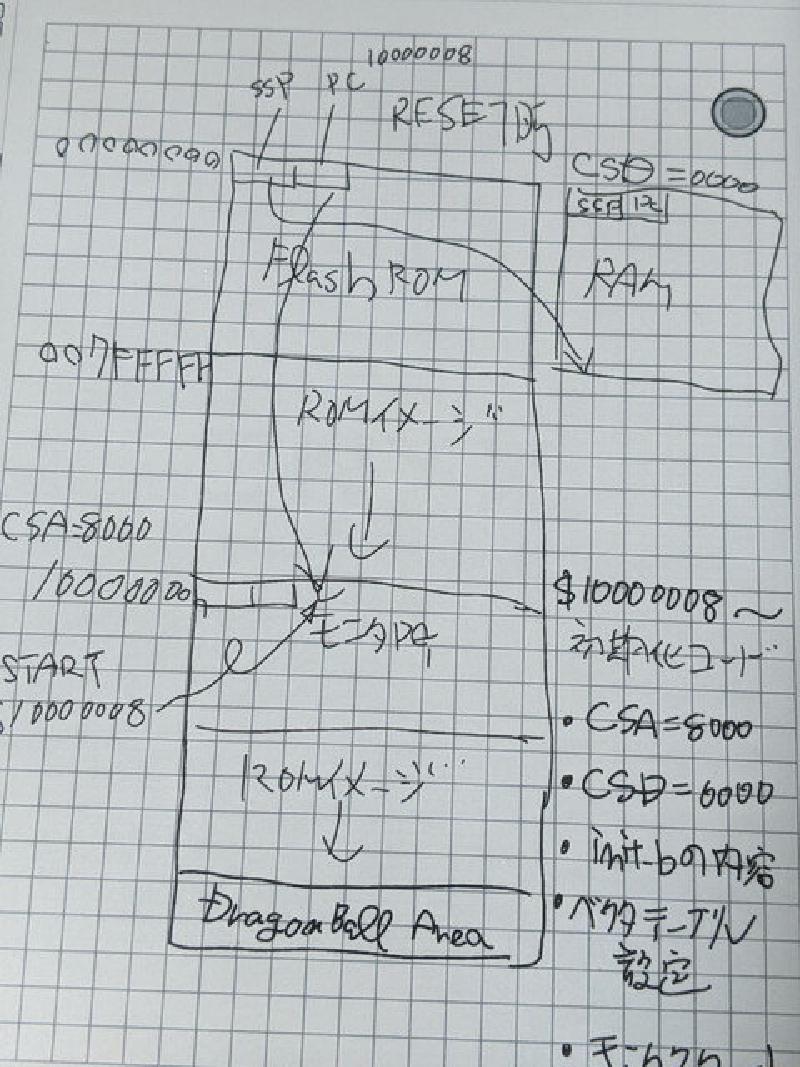 10000008
SSP PC
RESET時
00000000
CSD=0000
SSP PC
Flash ROM
RAM
007FFFFF
ROMイメージ
CSA=8000
10000000
$10000008~
初期化コード
START
$10000008
・CSA=8000
・CSD=6000
ROMイメージ
・init-bの内容
・ベクタテーブル
設定
DragonBall Area